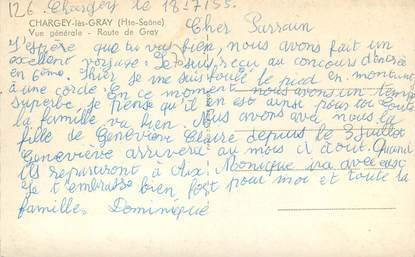 126. Chargey le 18-7/55.
CHARGEY-lès-GRAY (Hte-Saône)
Vue générale - Route de Gray
Cher Parrain
J'espère que tu vas bien, nous avons fait un
excellent voyage. Je suis reçu au concours d'entrée
en 6ème. Hier je me suis foulé le pied en montant
à une corde. En ce moment nous avons un temps
superbe, je pense qu'il en est ainsi pour toi. Toute
la famille va bien. Nous avons avec nous la
fille de Geneviève Claire depuis le 3 juillet
Geneviève arrivera au mois d'août. Quand
ils repartiront à Aix Monique ira avec eux
Je t'embrasse bien fort pour moi et toute la
famille. Dominique